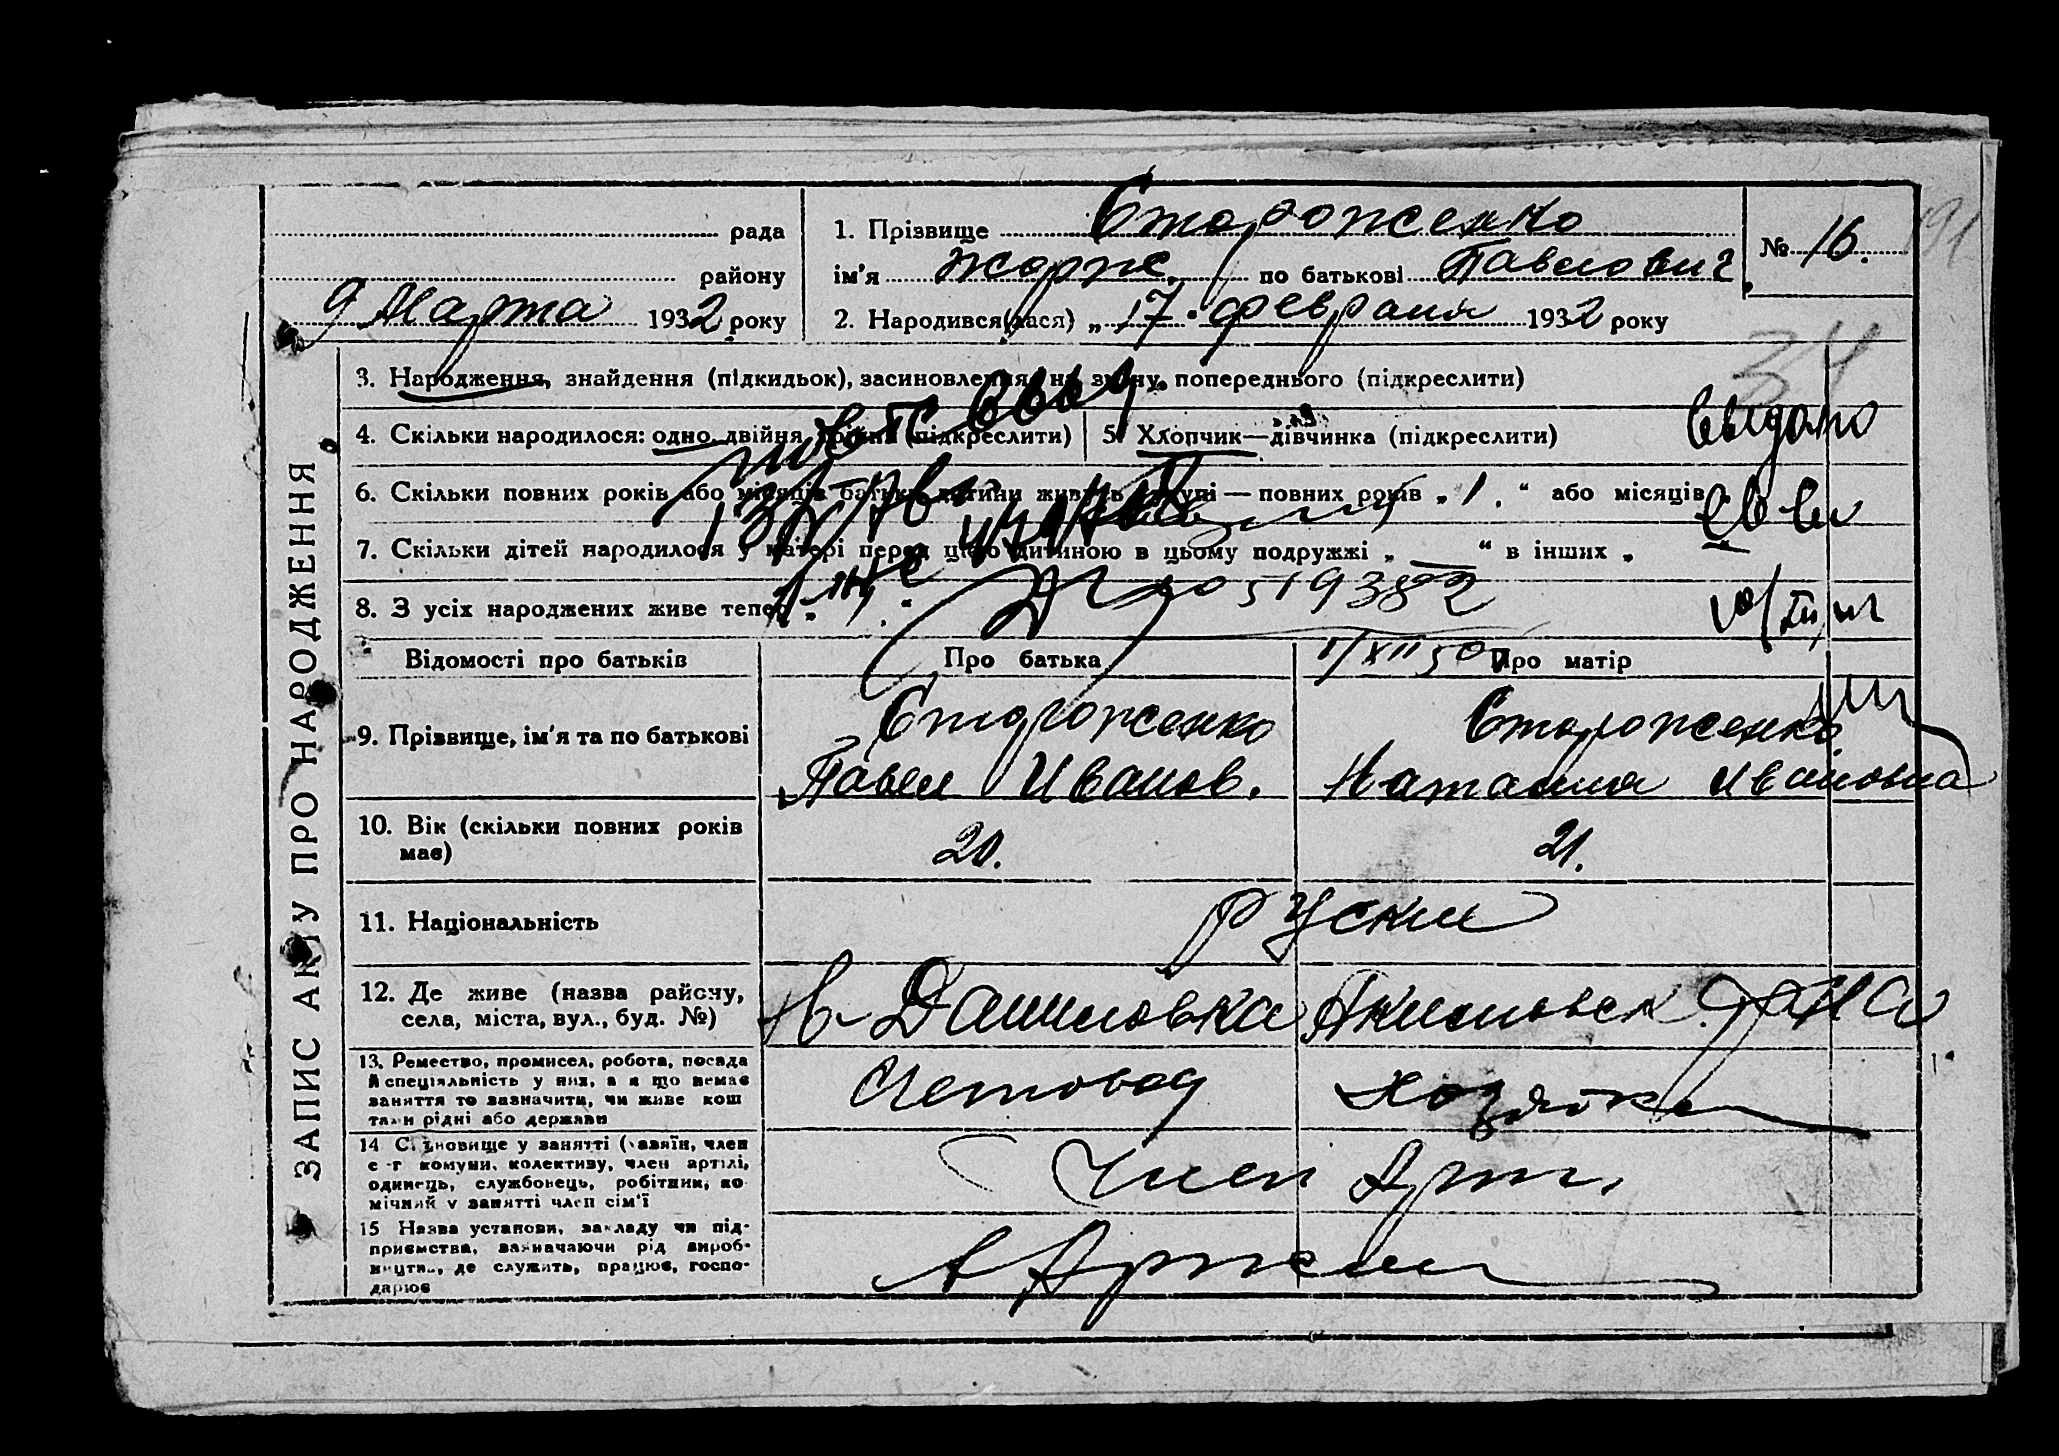 рада
1. Прізвище Стороженко
№ 16.
району
ім'я Жорж по батькові Павлович
9 Марта 1932 року
2. Народився(лася) „17" февраля 1932 року
34
3. Народження, знайдення (підкидьок), засиновлення, на зміну попереднього (підкреслити)
4. Скільки народилося: одно, двійня, трійня (підкреслити)
5. Хлопчик—дівчинка (підкреслити)
Выдано
6. Скільки повних років або місяців батьки дитини живуть вкупі — повних років „1." або місяців „
7. Скільки дітей народилося у матері перед цією дитиною в цьому подружжі „—" в інших „—
8. З усіх народжених живе тепер „ "
1/XII 50
Відомості про батьків
Про батька
Про матір
9. Прізвище, ім'я та по батькові
Стороженко
Павел Иванов.
Стороженко
Наталия Ивановна
10. Вік (скільки повних років має)
20.
21.
11. Національність
Руские
12. Де живе (назва району, села, міста, вул., буд. №)
Н-Даниловка Акимовск. р-на
13. Ремество, промисел, робота, посада й спеціяльність у них, а якщо немає заняття то зазначити, чи живе кош тами рідні або держави
Счетовод
хозяйка
14 Становище у занятті (хазяїн, член с-г комуни, колективу, член артілі, одинець, службовець, робітник, помічний у занятті член сім'ї
Член Арт.
15 Назва установи, закладу чи підприємства, зазначаючи рід виробництва, де служить, працює, господарює
в Артели
ЗАПИС АКТУ ПРО НАРОДЖЕННЯ